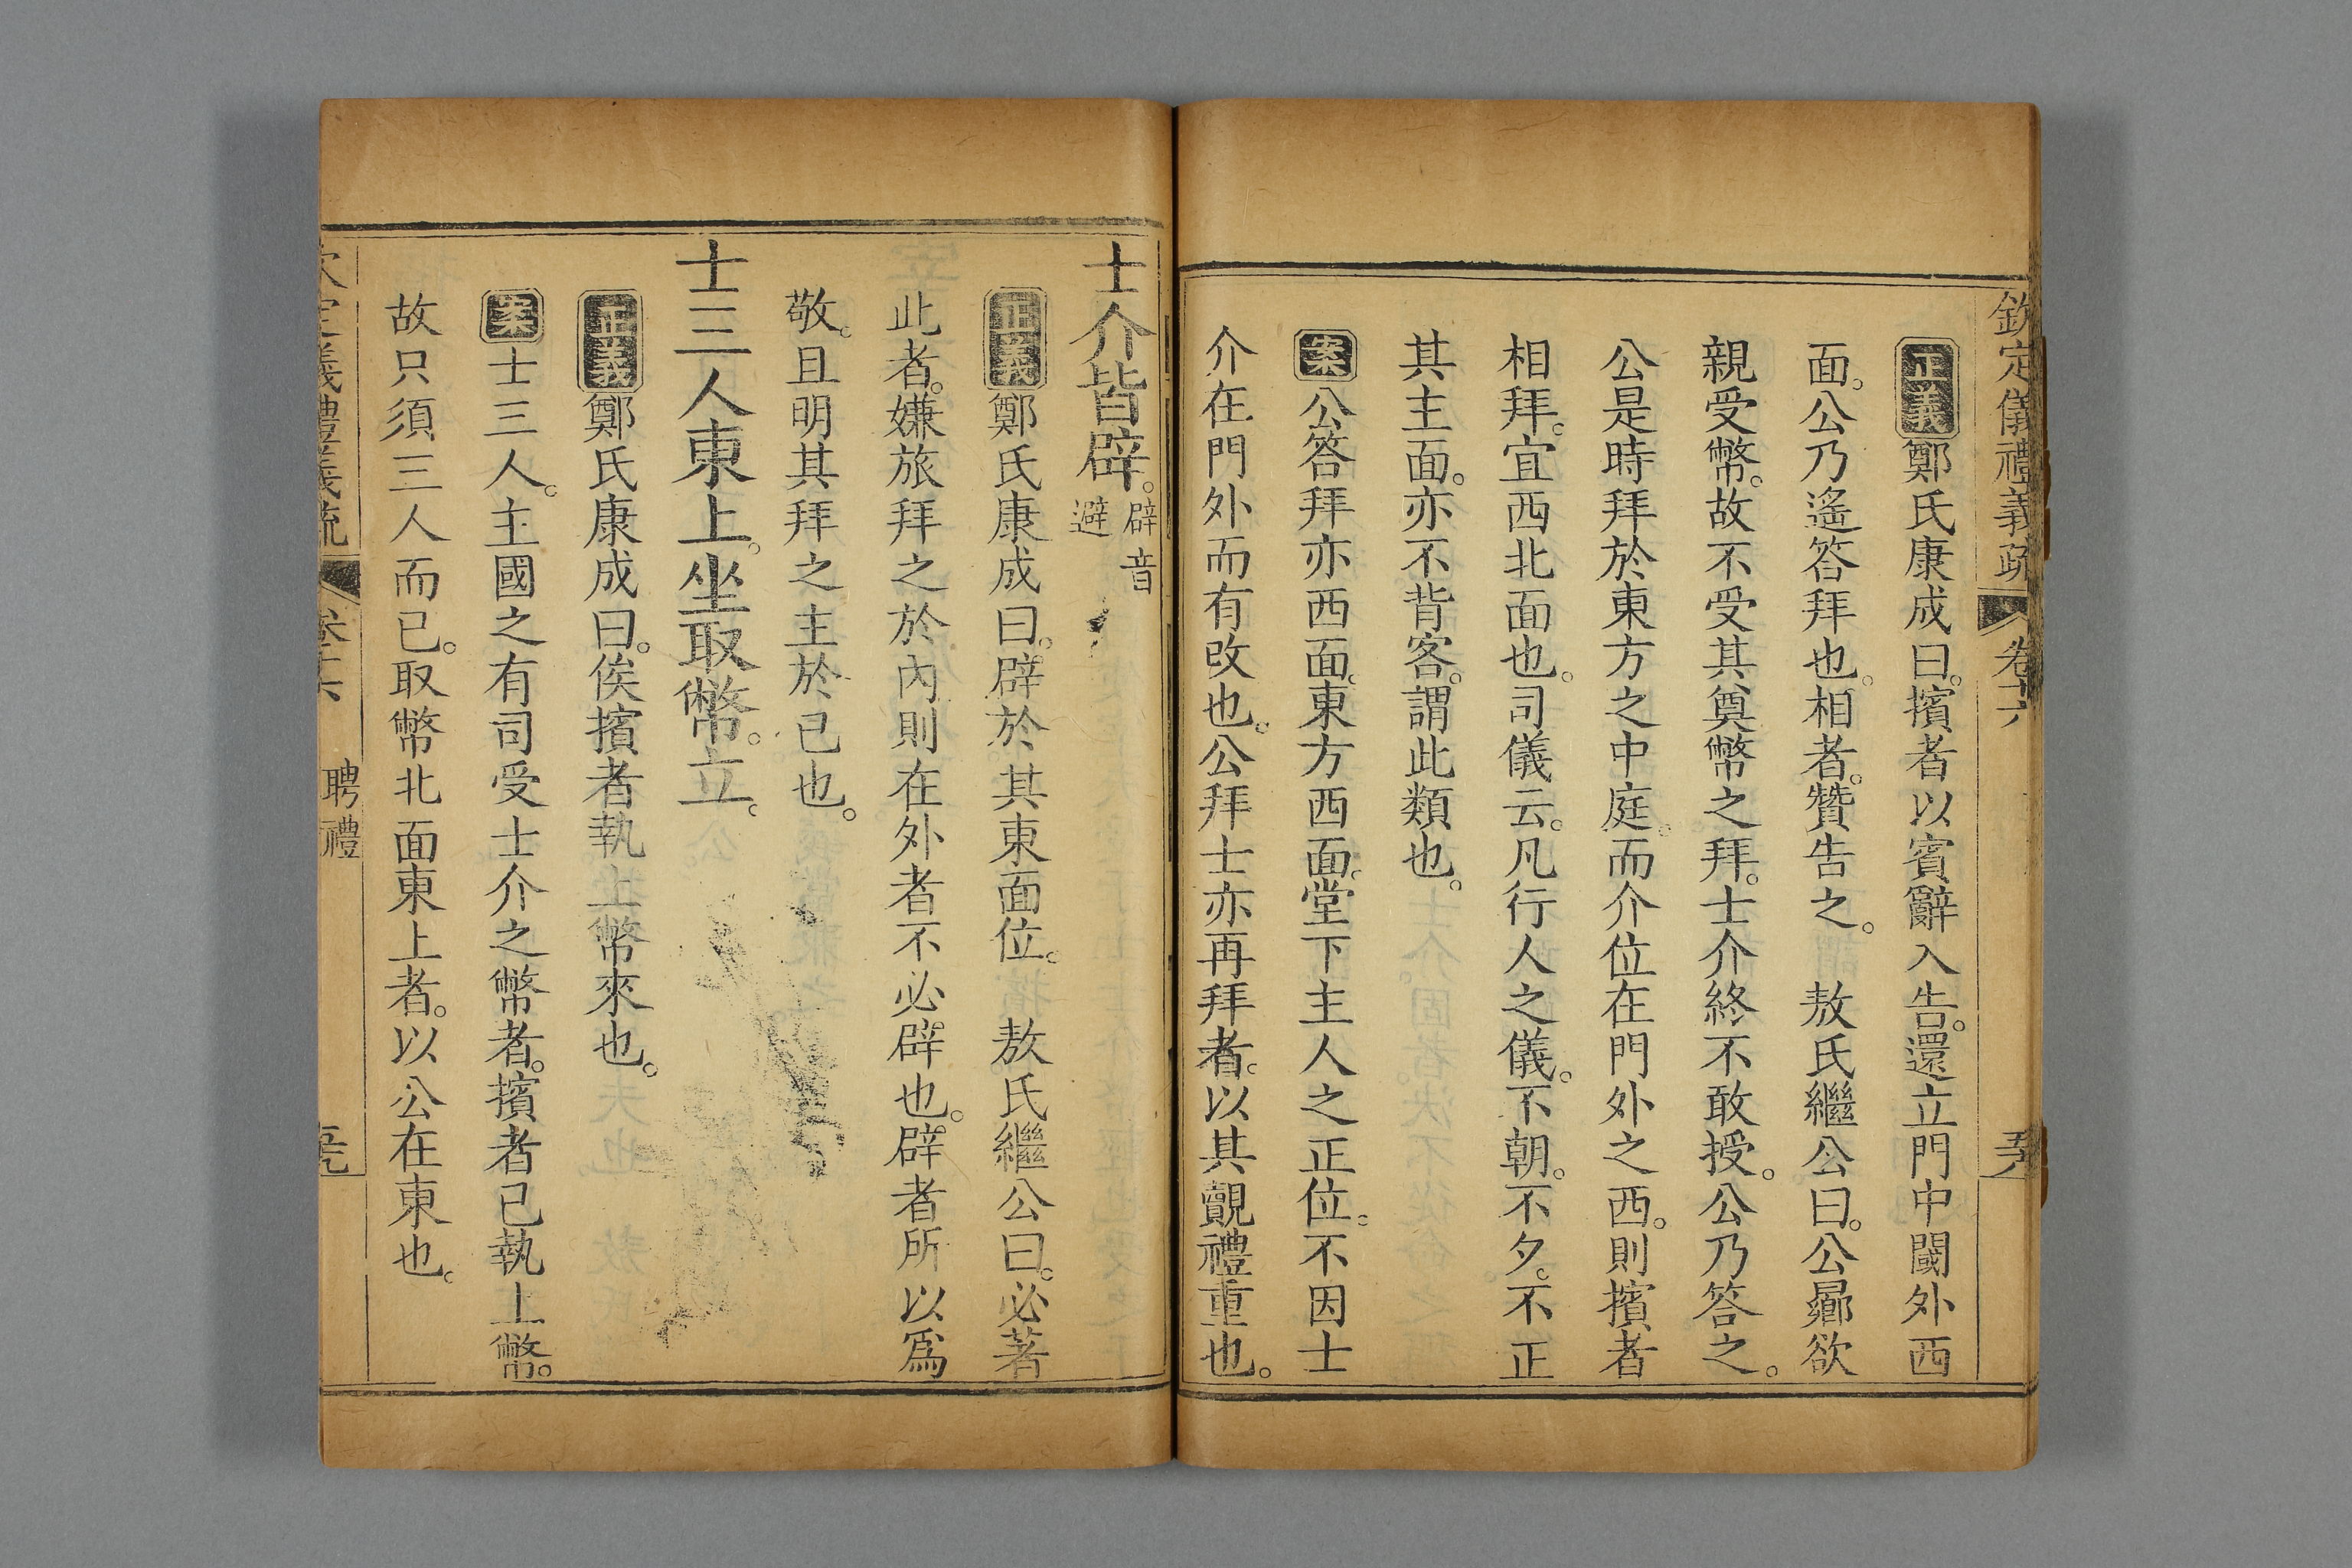 欽定儀禮義疏 卷十六
正義鄭氏康成曰。擯者以賓辭入告。還立門中閾外西
面。公乃遙答拜也。相者。贊告之。 敖氏繼公曰。公曏欲
親受幣。故不受其奠幣之拜。士介終不敢授。公乃答之。
公是時拜於東方之中庭。而介位在門外之西。則擯者
相拜。宜西北面也。司儀云。凡行人之儀。不朝。不夕。不正
其主面。亦不背客。謂此類也。
案公答拜亦西面。東方西面。堂下主人之正位。不因士
介在門外而有改也。公拜士亦再拜者。以其覿禮重也。
士介皆辟。辟音避
正義鄭氏康成曰。辟於其東面位。 敖氏繼公曰。必著
此者。嫌旅拜之於內則在外者不必辟也。辟者所以爲
敬。且明其拜之主於已也。
士三人東上。坐取幣。立。
正義鄭氏康成曰。俟擯者執上幣來也。
案士三人。主國之有司受士介之幣者。擯者已執上幣。
故只須三人而已。取幣北面東上者。以公在東也。
欽定儀禮義疏 卷十六 聘禮